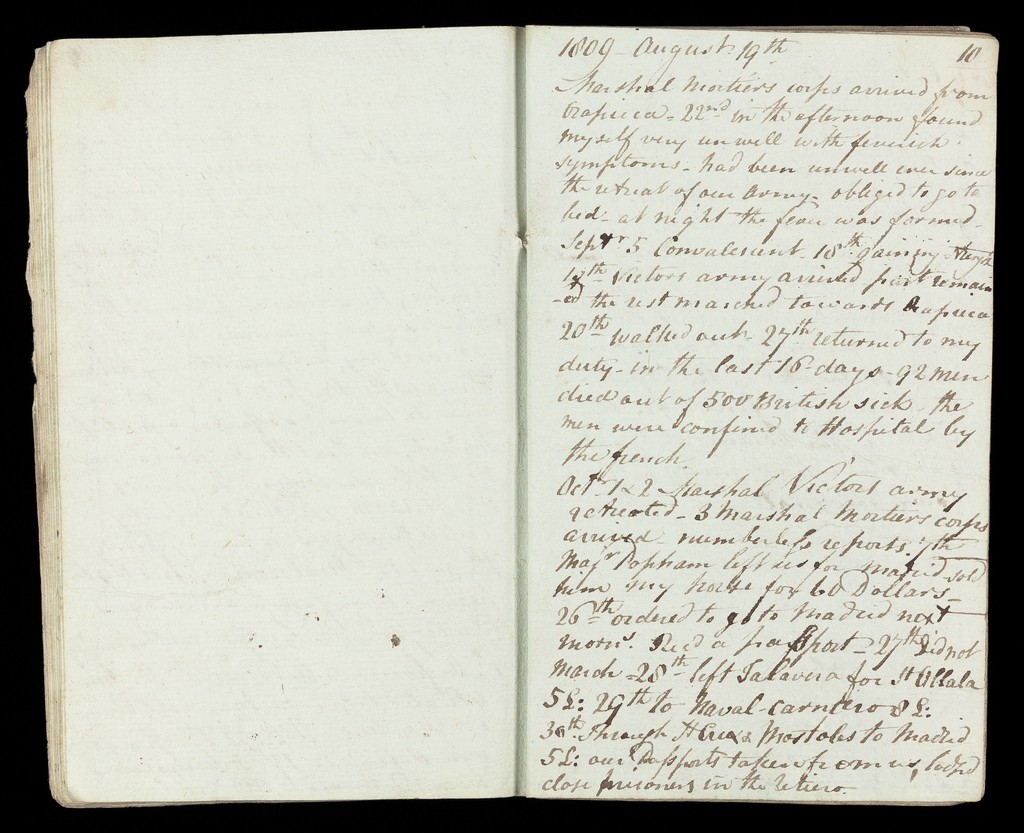 1809 - August 19th 10
Marshal Mortiers corps arrived from
Orapieca - 22nd in the afternoon found
myself very unwell with feverish
symptoms - had been unwell ever since
the retreat of our Army - obliged to go to
bed - at night the fever was formed -
Septr 5 Convalescent - 18th gaining
19th Victors army arrived part remain
-ed the rest marched towards Orapieca
20th walked out - 27th returned to my
duty - in the last 16 days - 92 men
died out of 500 British sick - the
men were confined to Hospital by
the french.
Oct. 1 & 2 Marshal Victors army
retreated - 3 Marshal Mortiers corps
arrived numberless reports. 7th
Majr Popham left us for Madrid - sold
him my horse for 60 Dollars -
26th ordered to go to Madrid next
morng. Recd a passport - 27th did not
March - 28th left Talavera for St Ollala
5 L: 29th to Naval-Carniero 8 L:
30th Through St Crux & Mostoles to Madrid
5 L: our Passports taken from us, lodged
close prisoners in the Retiero.